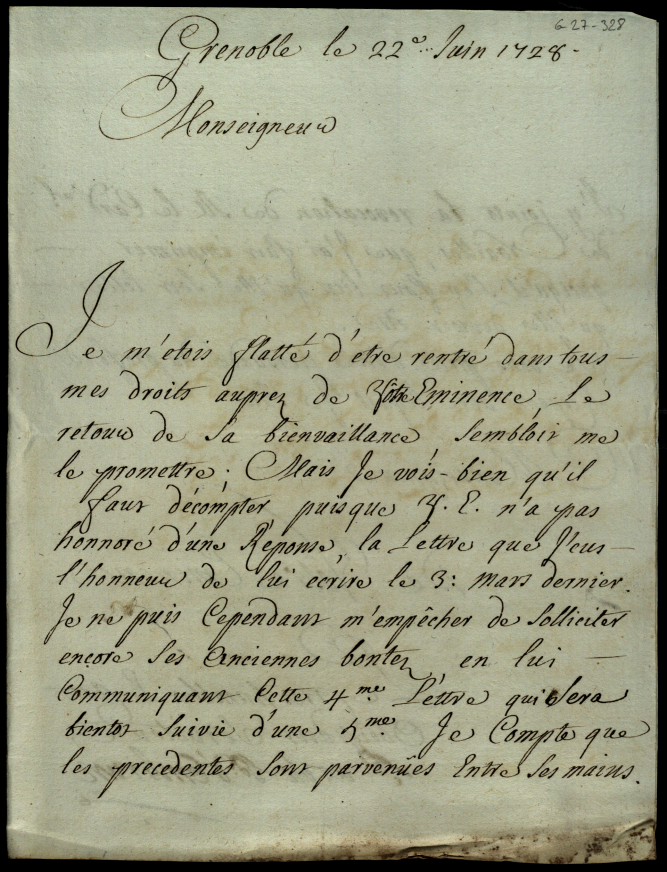 G-27-328
Grenoble le 22e.. Juin 1728.
Monseigneur
Je m'etois flatté d'etre rentré dans tous
mes droits auprez de Vôtre Eminence. Le
retour de sa bienvaillance sembloit me
le promettre. Mais Je vois-bien qu'il
faut décompter puisque V. E. n'a pas
honnoré d'une Réponse, la Lettre que J'eus
l'honneur de lui écrire le 3: mars dernier.
Je ne puis Cependant m'empêcher de solliciter
encore ses anciennes bontez en lui
Communiquant Cette 4me. Lettre qui sera
bientot suivie d'une 5me. Je Compte que
les precedentes sont parvenües Entre ses mains.